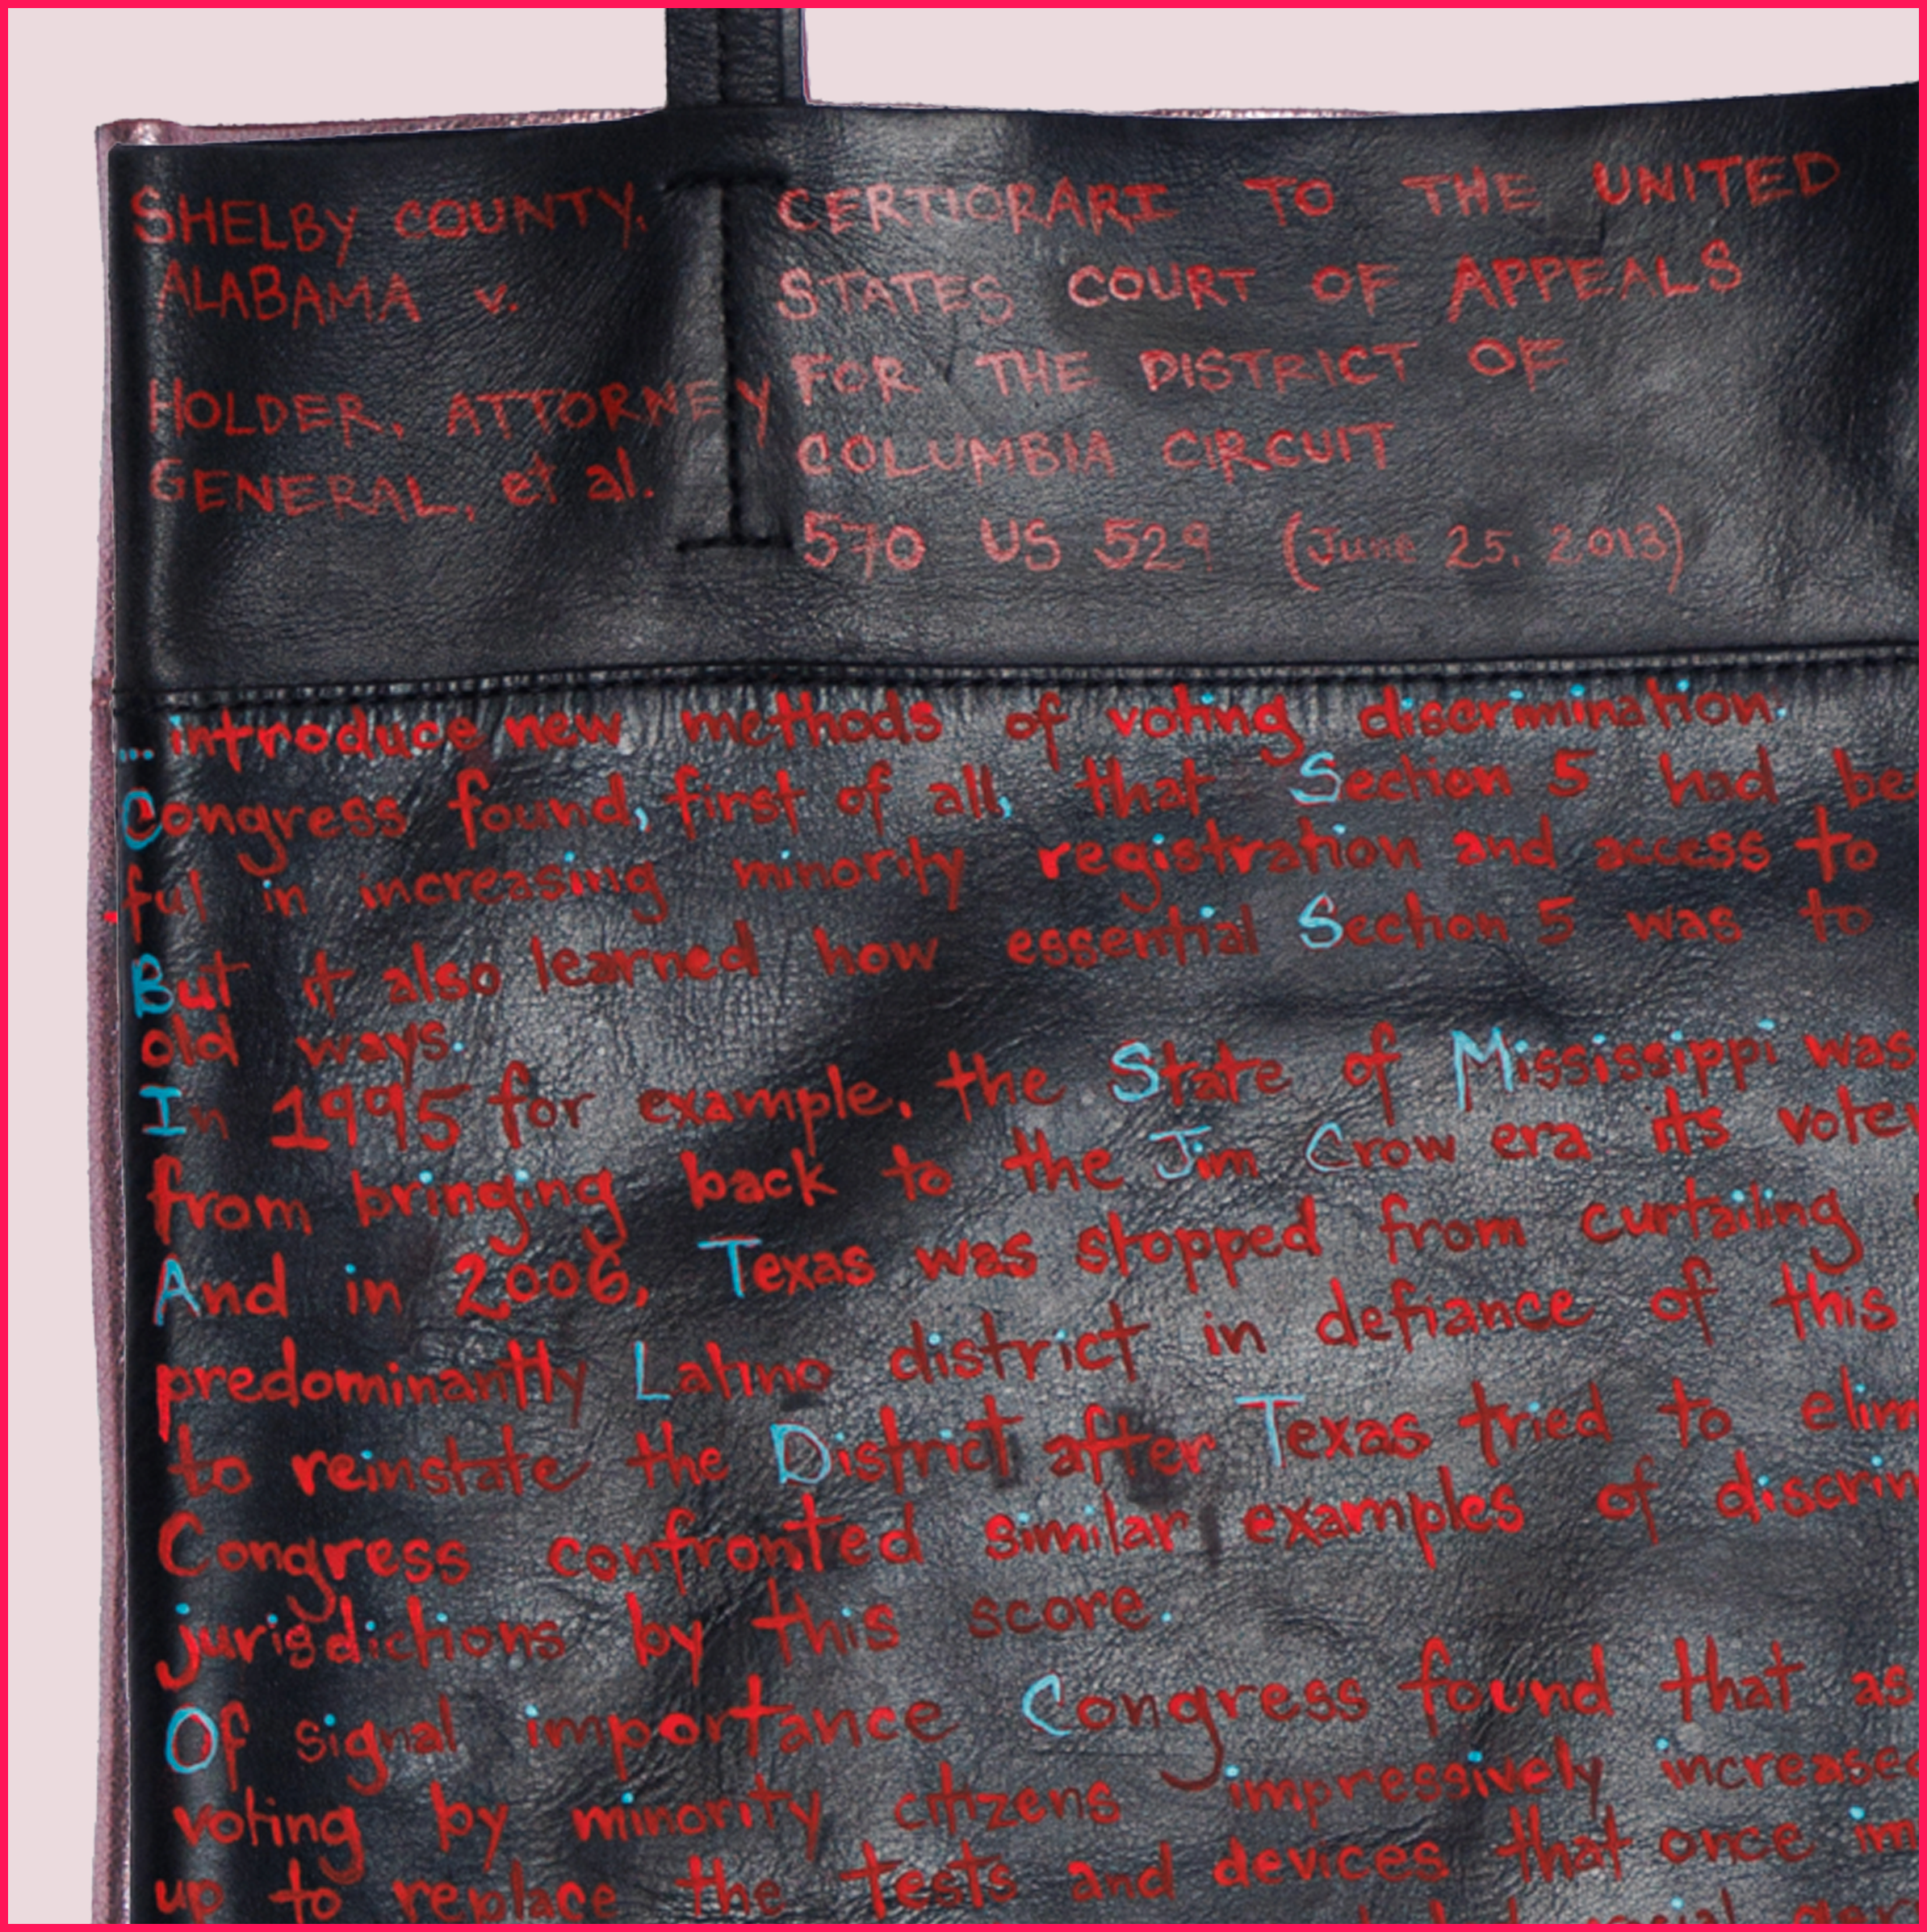 SHELBY COUNTY,
ALABAMA v.
HOLDER, ATTORNEY
GENERAL, et al.
CERTIORARI TO THE UNITED
STATES COURT OF APPEALS
FOR THE DISTRICT OF
COLUMBIA CIRCUIT
570 US 529 (June 25, 2013)
...introduce new methods of voting discrimination.
Congress found, first of all, that Section 5 had be
ful in increasing minority registration and access to
But it also learned how essential Section 5 was to
old ways.
In 1995 for example, the State of Mississippi was
from bringing back to the Jim Crow era its voter
And in 2006, Texas was stopped from curtailing
predominantly Latino district in defiance of this
to reinstate the District after Texas tried to elim
Congress confronted similar examples of discrim
jurisdictions by this score.
Of signal importance Congress found that as
voting by minority citizens impressively increased
up to replace the tests and devices that once im